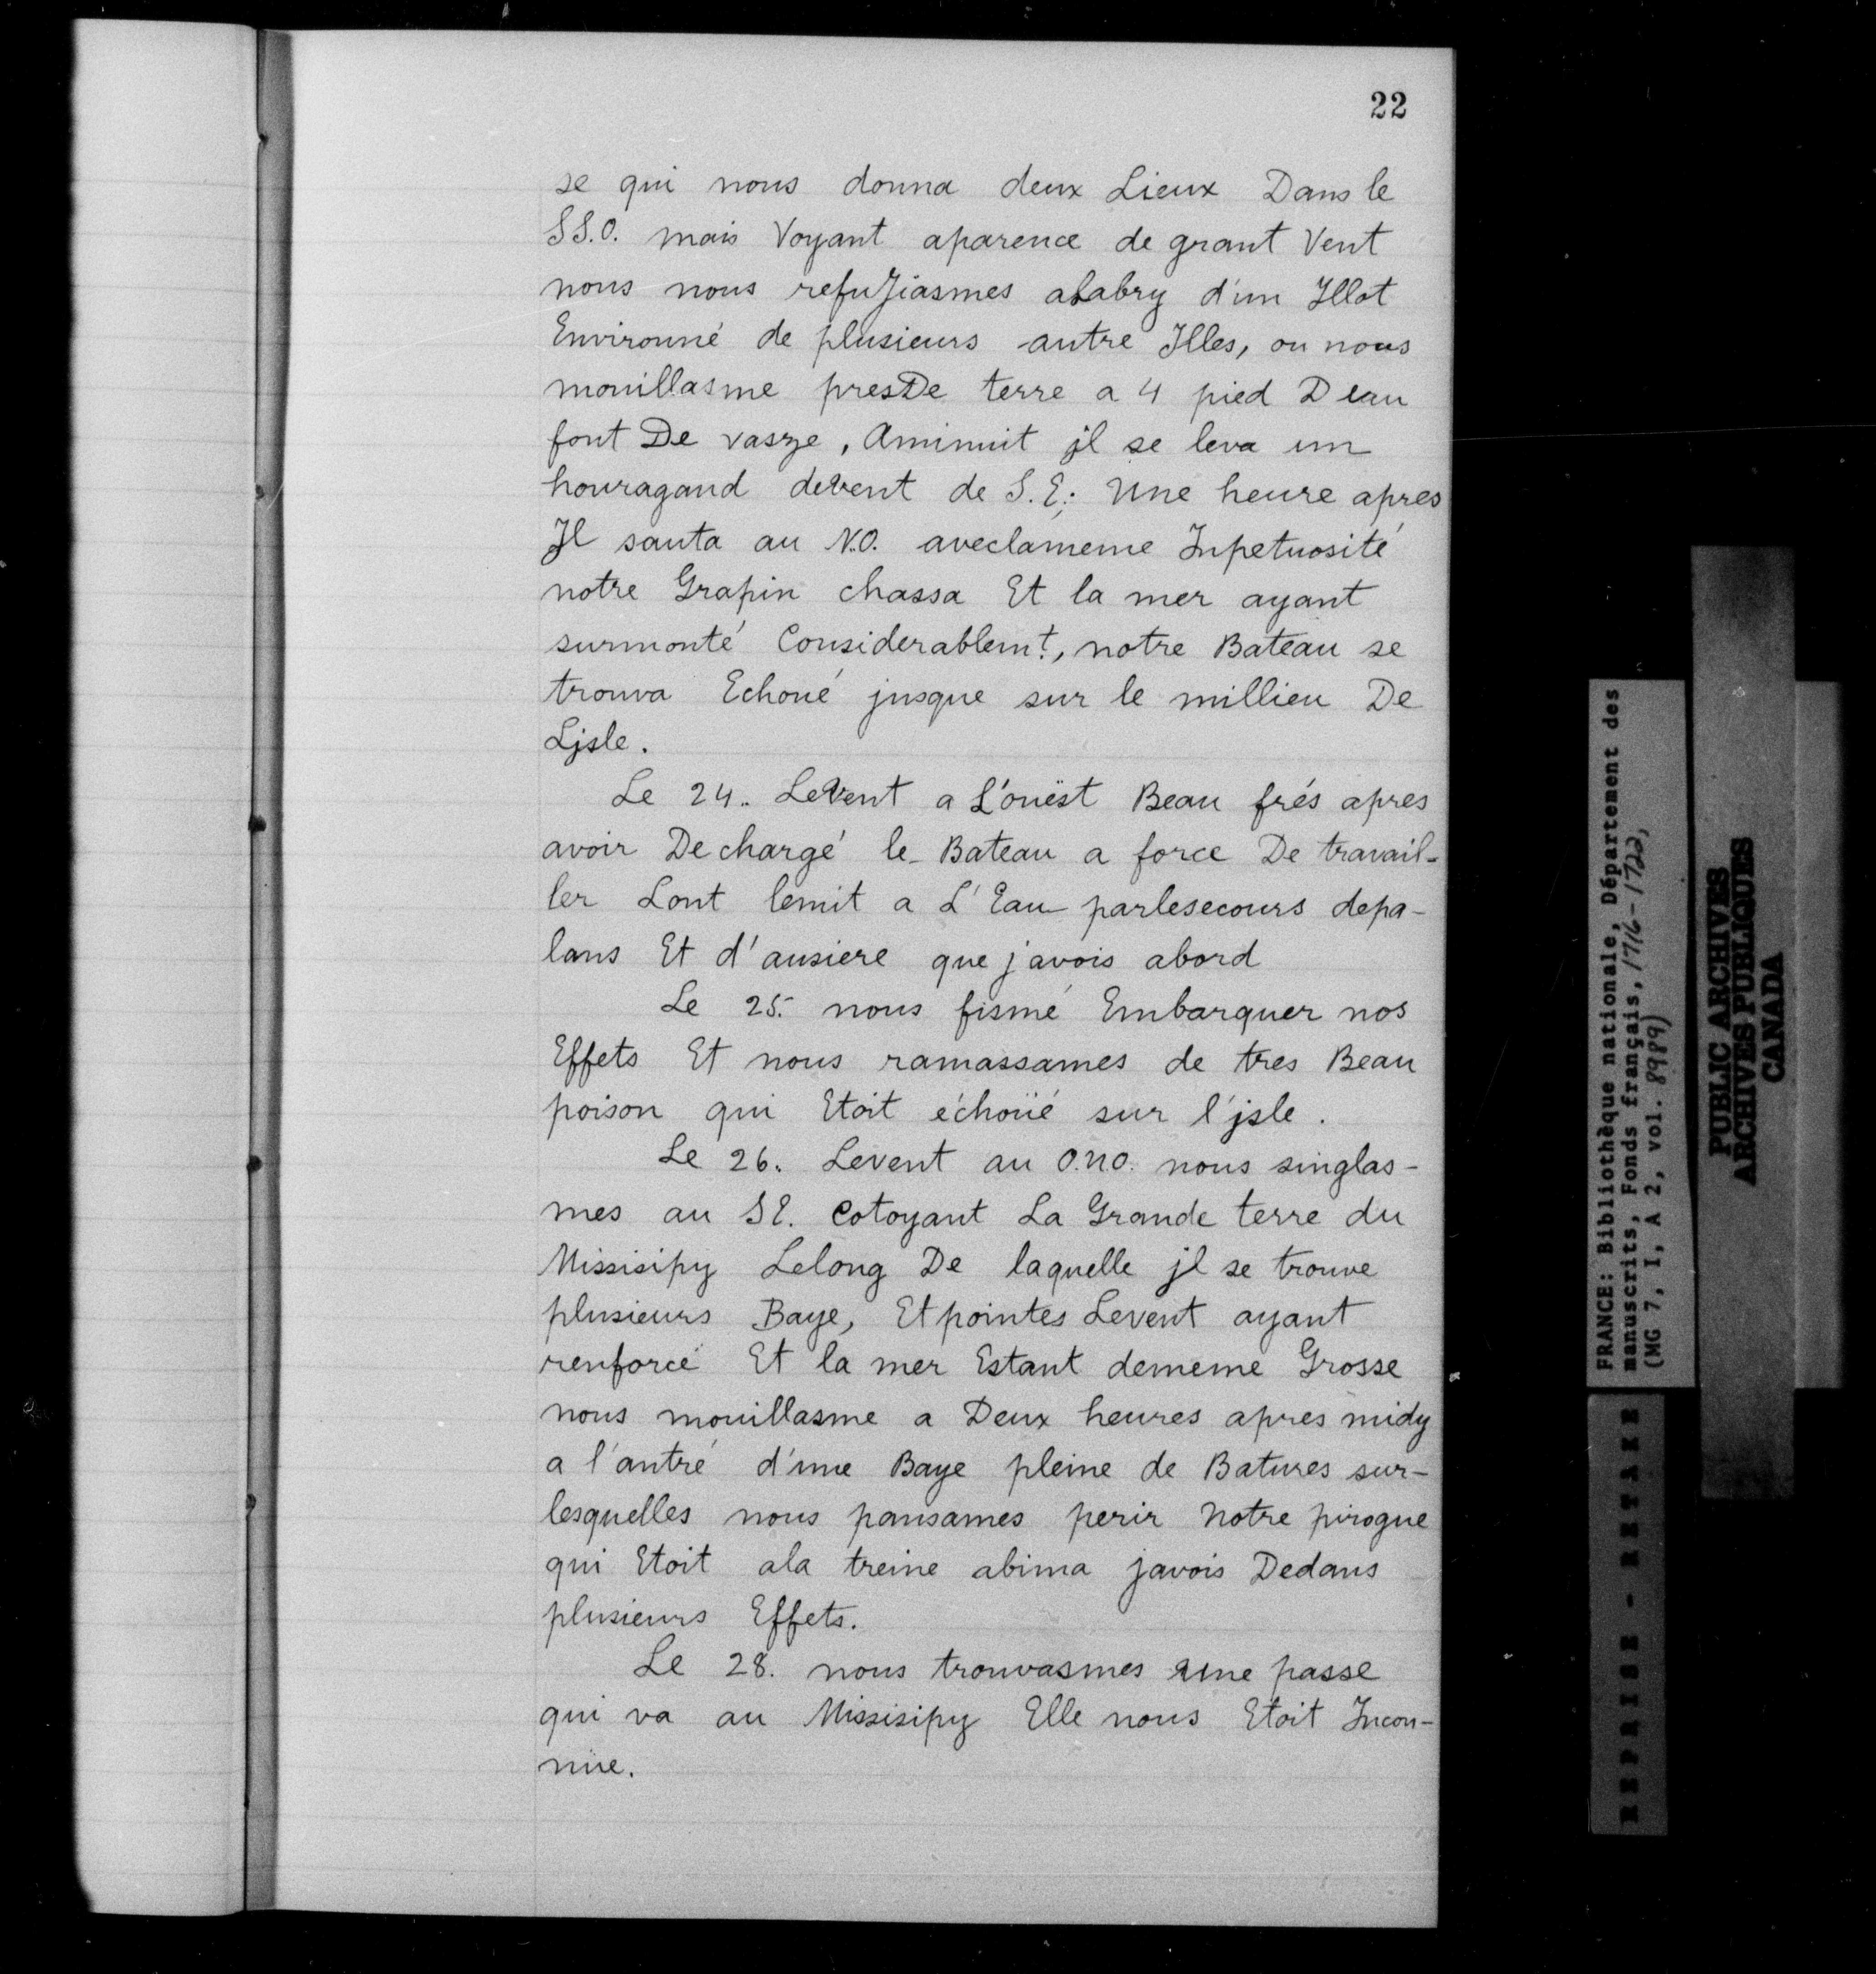 22
se qui nous donna deux Lieux Dans le
SS.O. mais Voyant aparence de grant Vent
nous nous refuJiasmes alabry d'un Jllot
Environné de plusieurs autre Jlles, ou nous
mouillasme presDe terre a 4 pied D eau
font De vasze, Aminuit jl se leva un
houragand devent de S.E; Une heure apres
Jl sauta au N.O. aveclameme Jnpetuosité
notre Grapin chassa Et la mer ayant
surmonté Considerablemt, notre Bateau se
trouva Echoué jusque sur le millieu De
Ljsle.
Le 24.. LeVent a L'ouëst Beau frés apres
avoir De chargé le Bateau a force De travail-
ler Lont lemit a L'Eau parlesecours depa-
lans Et d'ausiere que javois abord
Le 25. nous fismé Embarquer nos
Effets Et nous ramassames de tres Beau
poison qui Etoit échoüé sur l'jsle.
Le 26. Levent au O.NO. nous singlas-
mes au SE. Cotoyant La Grande terre du
Missisipy Lelong De laquelle jl se trouve
plusieurs Baye, Et pointes Levent ayant
renforcé Et la mer Estant dememe Grosse
nous mouillasme a Deux heures apres midy
a l'antré d'une Baye pleine de Batures sur-
lesquelles nous pansames perir Notre pirogue
qui Etoit ala treine abima javois Dedans
plusieurs Effets.
Le 28. nous trouvasmes une passe
qui va au Missisipy Elle nous Etoit Jncon-
nüe.
FRANCE: Bibliothèque nationale, Département des
manuscrits, Fonds français, 1716-1722,
(MG 7, I, A 2, vol. 8989)
PUBLIC ARCHIVES
ARCHIVES PUBLIQUES
CANADA
REPRISE - RETAKE